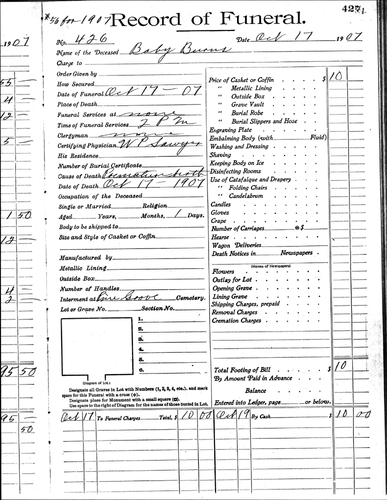 for 1907
427
Record of Funeral.
No. 426 Date Oct 17 1907
Name of the Deceased Baby Burns
Charge to
Order Given by
How Secured
Date of Funeral Oct 17 - 07
Place of Death
Funeral Services at
Time of Funeral Services 2 P M
Clergyman
Certifying Physician W P Sawyer
His Residence
Number of Burial Certificate
Cause of Death Premature birth
Date of Death Oct 17 - 1907
Occupation of the Deceased
Single or Married Religion
Aged Years, Months, 1 Days.
Body to be shipped to
Size and Style of Casket or Coffin
Manufactured by
Metallic Lining
Outside Box
Number of Handles
Interment at Pine Grove Cemetery.
Lot or Grave No. Section No.
1.
2.
3.
4.
5.
6.
Diagram of Lot.
Designate all Graves in Lot with Numbers (1, 2, 3, 4, etc.), and mark
space for this Funeral with a cross (+).
Designate place for Monument with a small square (□).
Use space to the right of Diagram for the names of those buried in Lot.
Price of Casket or Coffin $ 10
" Metallic Lining
" Outside Box
" Grave Vault
" Burial Robe
" Burial Slippers and Hose
Engraving Plate
Embalming Body (with Fluid)
Washing and Dressing
Shaving
Keeping Body on Ice
Disinfecting Rooms
Use of Catafalque and Drapery
" Folding Chairs
" Candelabrum
Candles
Gloves
Crape
Number of Carriages @ $
Hearse
Wagon Deliveries
Death Notices in Newspapers
(Names of Newspapers)
Flowers
Outlay for Lot
Opening Grave
Lining Grave
Shipping Charges, prepaid
Removal Charges
Cremation Charges
Total Footing of Bill $ 10
By Amount Paid in Advance
Balance
Entered into Ledger, page or below.
Oct 17 To Funeral Charges Total, $ 10 00 Oct 19 By Cash 10 00
1907
55
4
12
5
1 50
12
4
2
95 50
95
50